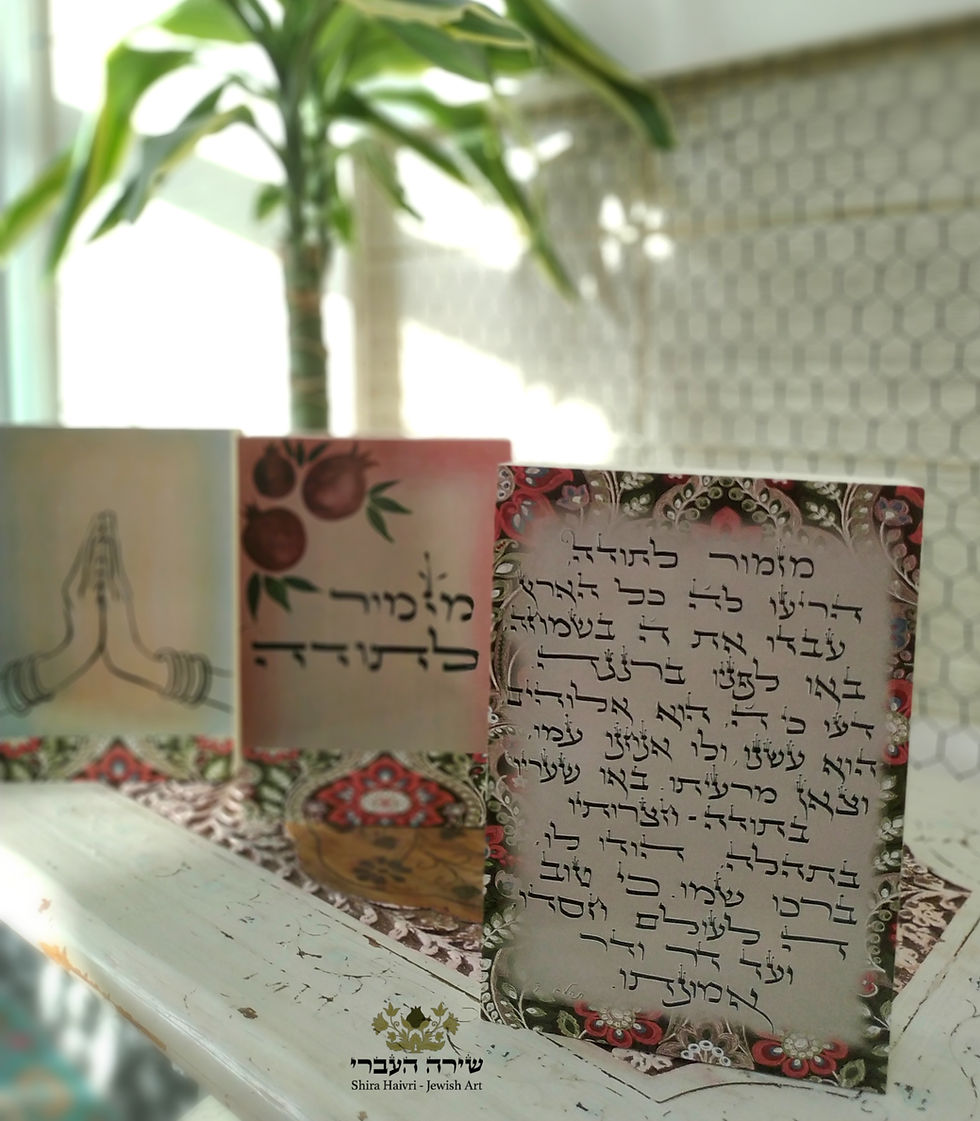 מזמור
לתודה
מזמור לתודה
הריעו לה' כל הארץ
עבדו את ה' בשמחה
באו לפניו ברננה
דעו כי ה' הוא אלוהים
הוא עשנו ולו אנחנו עמו,
וצאן מרעיתו. באו שעריו
בתודה - חצרותיו
בתהלה, הודו לו,
ברכו שמו. כי טוב
ה' לעולם חסדו
ועד דר ודר
אמונתו.
שירה העברי
Shira Haivri - Jewish Art